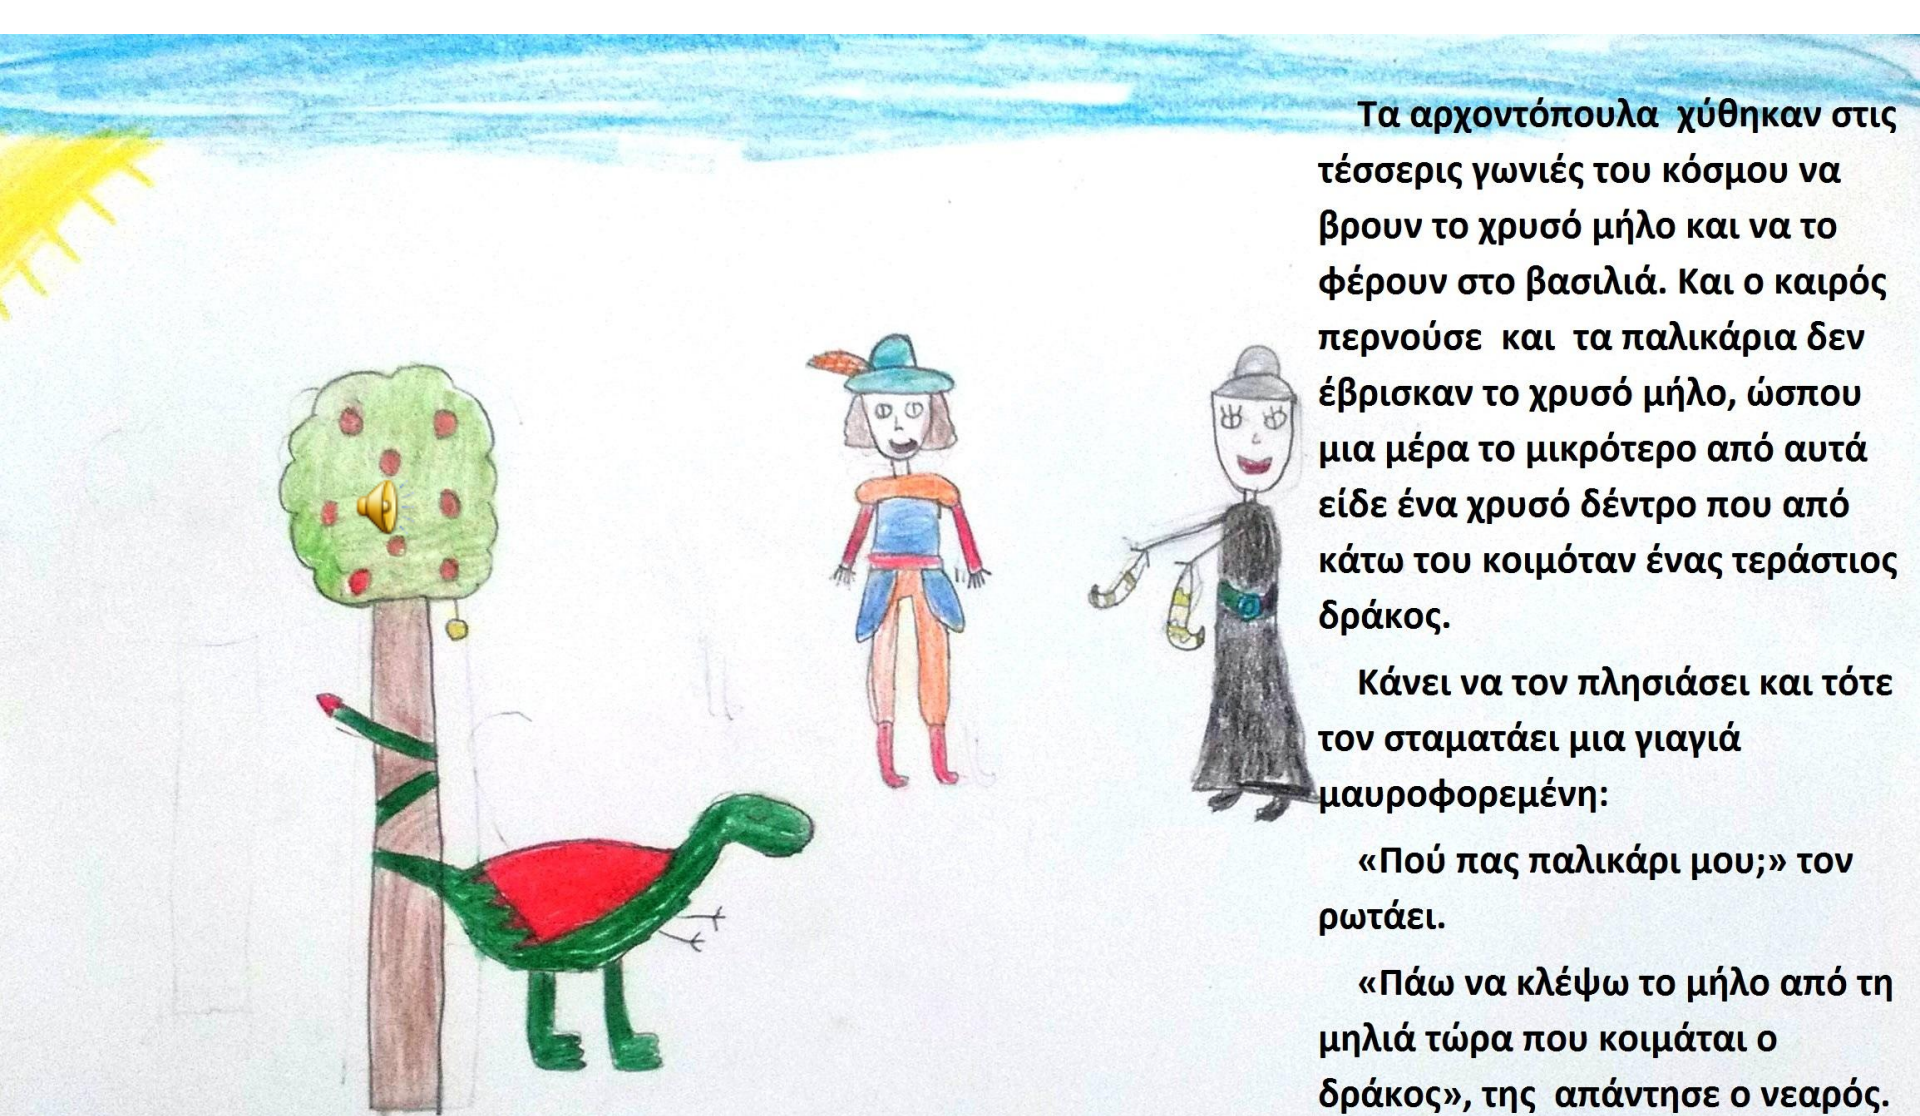 Τα αρχοντόπουλα χύθηκαν στις
τέσσερις γωνιές του κόσμου να
βρουν το χρυσό μήλο και να το
φέρουν στο βασιλιά. Και ο καιρός
περνούσε και τα παλικάρια δεν
έβρισκαν το χρυσό μήλο, ώσπου
μια μέρα το μικρότερο από αυτά
είδε ένα χρυσό δέντρο που από
κάτω του κοιμόταν ένας τεράστιος
δράκος.
Κάνει να τον πλησιάσει και τότε
τον σταματάει μια γιαγιά
μαυροφορεμένη:
«Πού πας παλικάρι μου;» τον
ρωτάει.
«Πάω να κλέψω το μήλο από τη
μηλιά τώρα που κοιμάται ο
δράκος», της απάντησε ο νεαρός.